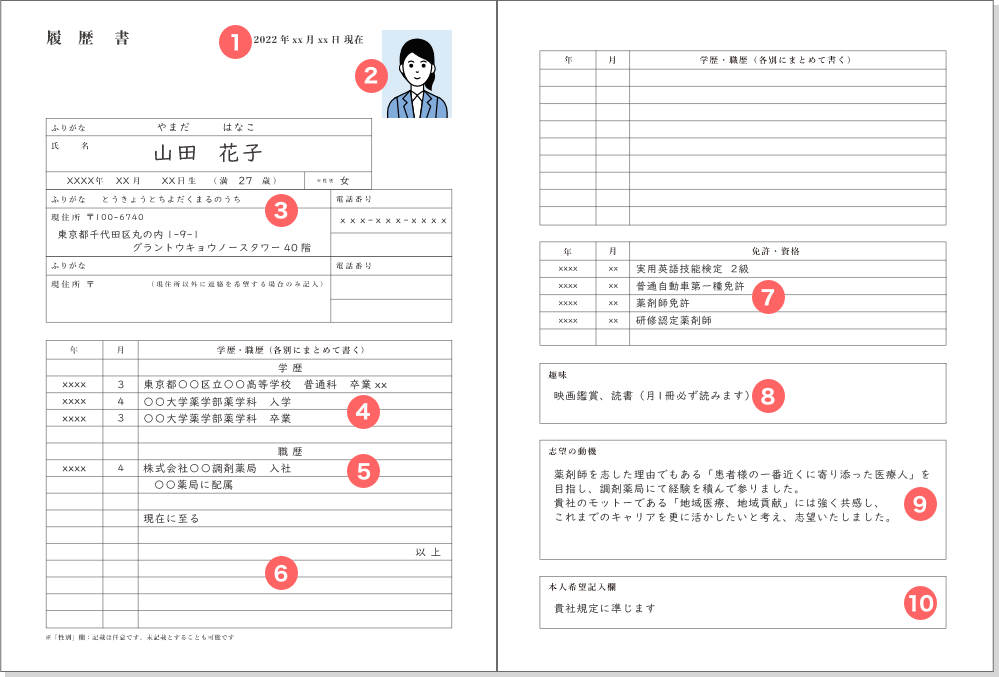 履歴書
1
2022年xx月xx日 現在
2
ふりがな やまだ はなこ
氏 名
山田 花子
XXXX年 XX月 XX日生 （満 27 歳） ※性別 女
ふりがな とうきょうとちよだくまるのうち
3
電話番号
現住所 〒100-6740
xxx-xxx-xxxx
東京都千代田区丸の内 1-9-1
グラントウキョウノースタワー 40 階
ふりがな
電話番号
現住所 〒 （現住所以外に連絡を希望する場合のみ記入）
年 月 学歴・職歴（各別にまとめて書く）
学 歴
xxxx 3 東京都〇〇区立〇〇高等学校 普通科 卒業 xx
xxxx 4 〇〇大学薬学部薬学科 入学
4
xxxx 3 〇〇大学薬学部薬学科 卒業
職 歴
xxxx 4 株式会社〇〇調剤薬局 入社
5
〇〇薬局に配属
現在に至る
以 上
6
※「性別」欄：記載は任意です。未記載とすることも可能です
年 月 学歴・職歴（各別にまとめて書く）
年 月 免許・資格
xxxx xx 実用英語技能検定 2級
xxxx xx 普通自動車第一種免許
7
xxxx xx 薬剤師免許
xxxx xx 研修認定薬剤師
趣味
映画鑑賞、読書（月1冊必ず読みます）
8
志望の動機
薬剤師を志した理由でもある「患者様の一番近くに寄り添った医療人」を
目指し、調剤薬局にて経験を積んで参りました。
貴社のモットーである「地域医療、地域貢献」には強く共感し、
これまでのキャリアを更に活かしたいと考え、志望いたしました。
9
本人希望記入欄
貴社規定に準じます
10